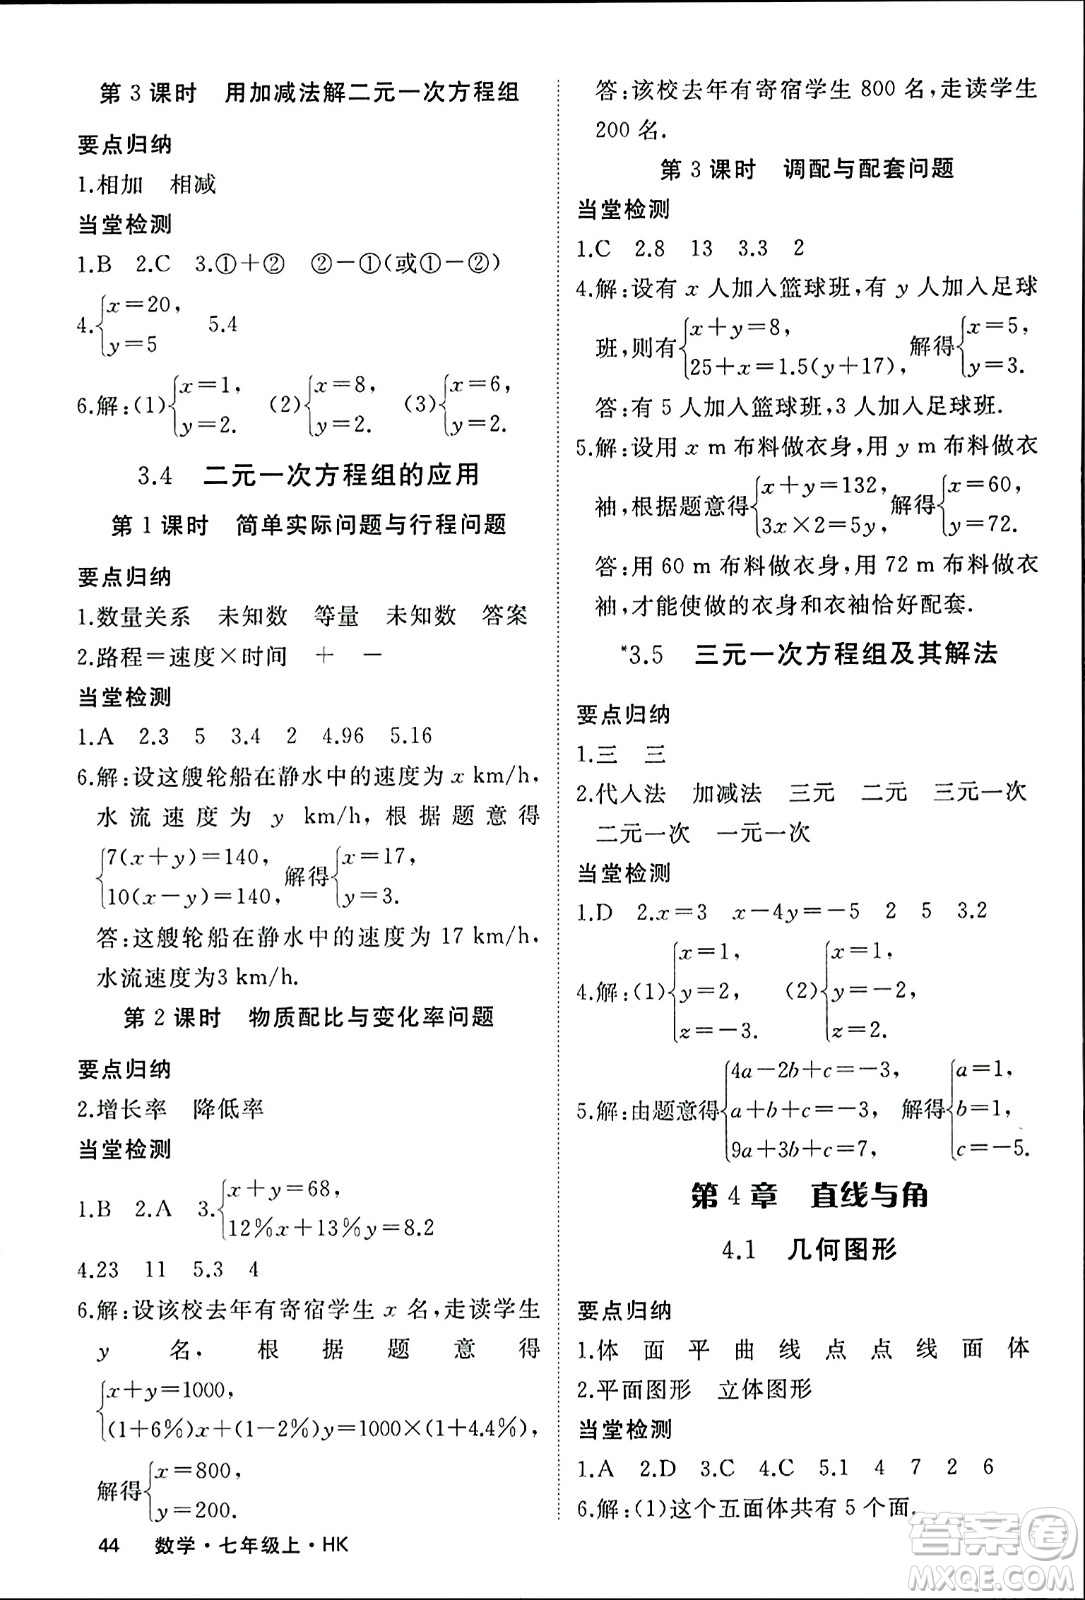 第 3 课时　用加减法解二元一次方程组
要点归纳
1.相加　相减
当堂检测
1.B　2.C　3.①＋②　②－①(或①－②)
4.{x＝20,
y＝5　5.4
6.解:(1){x＝1,
y＝2.　(2){x＝8,
y＝2.　(3){x＝6,
y＝2.
3.4　二元一次方程组的应用
第 1 课时　简单实际问题与行程问题
要点归纳
1.数量关系　未知数　等量　未知数　答案
2.路程＝速度×时间　＋　－
当堂检测
1.A　2.3　5　3.4　2　4.96　5.16
6.解:设这艘轮船在静水中的速度为 x km/h,
水流速度为 y km/h,根据题意得
{7(x＋y)＝140,
10(x－y)＝140,解得{x＝17,
y＝3.
答:这艘轮船在静水中的速度为 17 km/h,
水流速度为3 km/h.
第 2 课时　物质配比与变化率问题
要点归纳
2.增长率　降低率
当堂检测
1.B　2.A　3.{x＋y＝68,
12%x＋13%y＝8.2
4.23　11　5.3　4
6.解:设该校去年有寄宿学生 x 名,走读学生
y 名,根据题意得
{x＋y＝1000,
(1＋6%)x＋(1－2%)y＝1000×(1＋4.4%),
解得{x＝800,
y＝200.
44　数学·七年级上·HK
答:该校去年有寄宿学生 800 名,走读学生
200 名.
第 3 课时　调配与配套问题
当堂检测
1.C　2.8　13　3.3　2
4.解:设有 x 人加入篮球班,有 y 人加入足球
班,则有{x＋y＝8,
25＋x＝1.5(y＋17),解得{x＝5,
y＝3.
答:有 5 人加入篮球班,3 人加入足球班.
5.解:设用 x m 布料做衣身,用 y m 布料做衣
袖,根据题意得{x＋y＝132,
3x×2＝5y,解得{x＝60,
y＝72.
答:用 60 m 布料做衣身,用 72 m 布料做衣
袖,才能使做的衣身和衣袖恰好配套.
*3.5　三元一次方程组及其解法
要点归纳
1.三　三
2.代入法　加减法　三元　二元　三元一次
二元一次　一元一次
当堂检测
1.D　2.x＝3　x－4y＝－5　2　5　3.2
4.解:(1){x＝1,
y＝2,
z＝－3.　(2){x＝1,
y＝－2,
z＝2.
5.解:由题意得{4a－2b＋c＝－3,
a＋b＋c＝－3,
9a＋3b＋c＝7,　解得{a＝1,
b＝1,
c＝－5.
第 4 章　直线与角
4.1　几何图形
要点归纳
1.体　面　平　曲　线　点　点　线　面　体
2.平面图形　立体图形
当堂检测
1.A　2.D　3.C　4.C　5.1　4　7　2　6
6.解:(1)这个五面体共有 5 个面.
答案圈
MXQE.COM